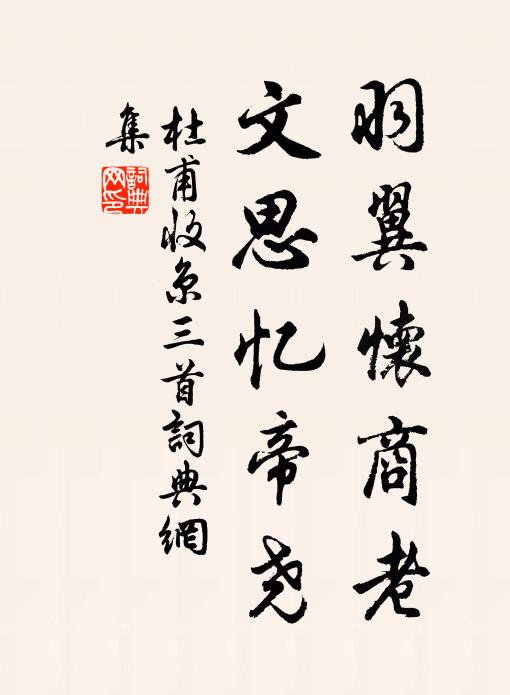 羽翼懷商老
文思忆帝尧
杜甫收京三首詞典網
集
詞典
网印